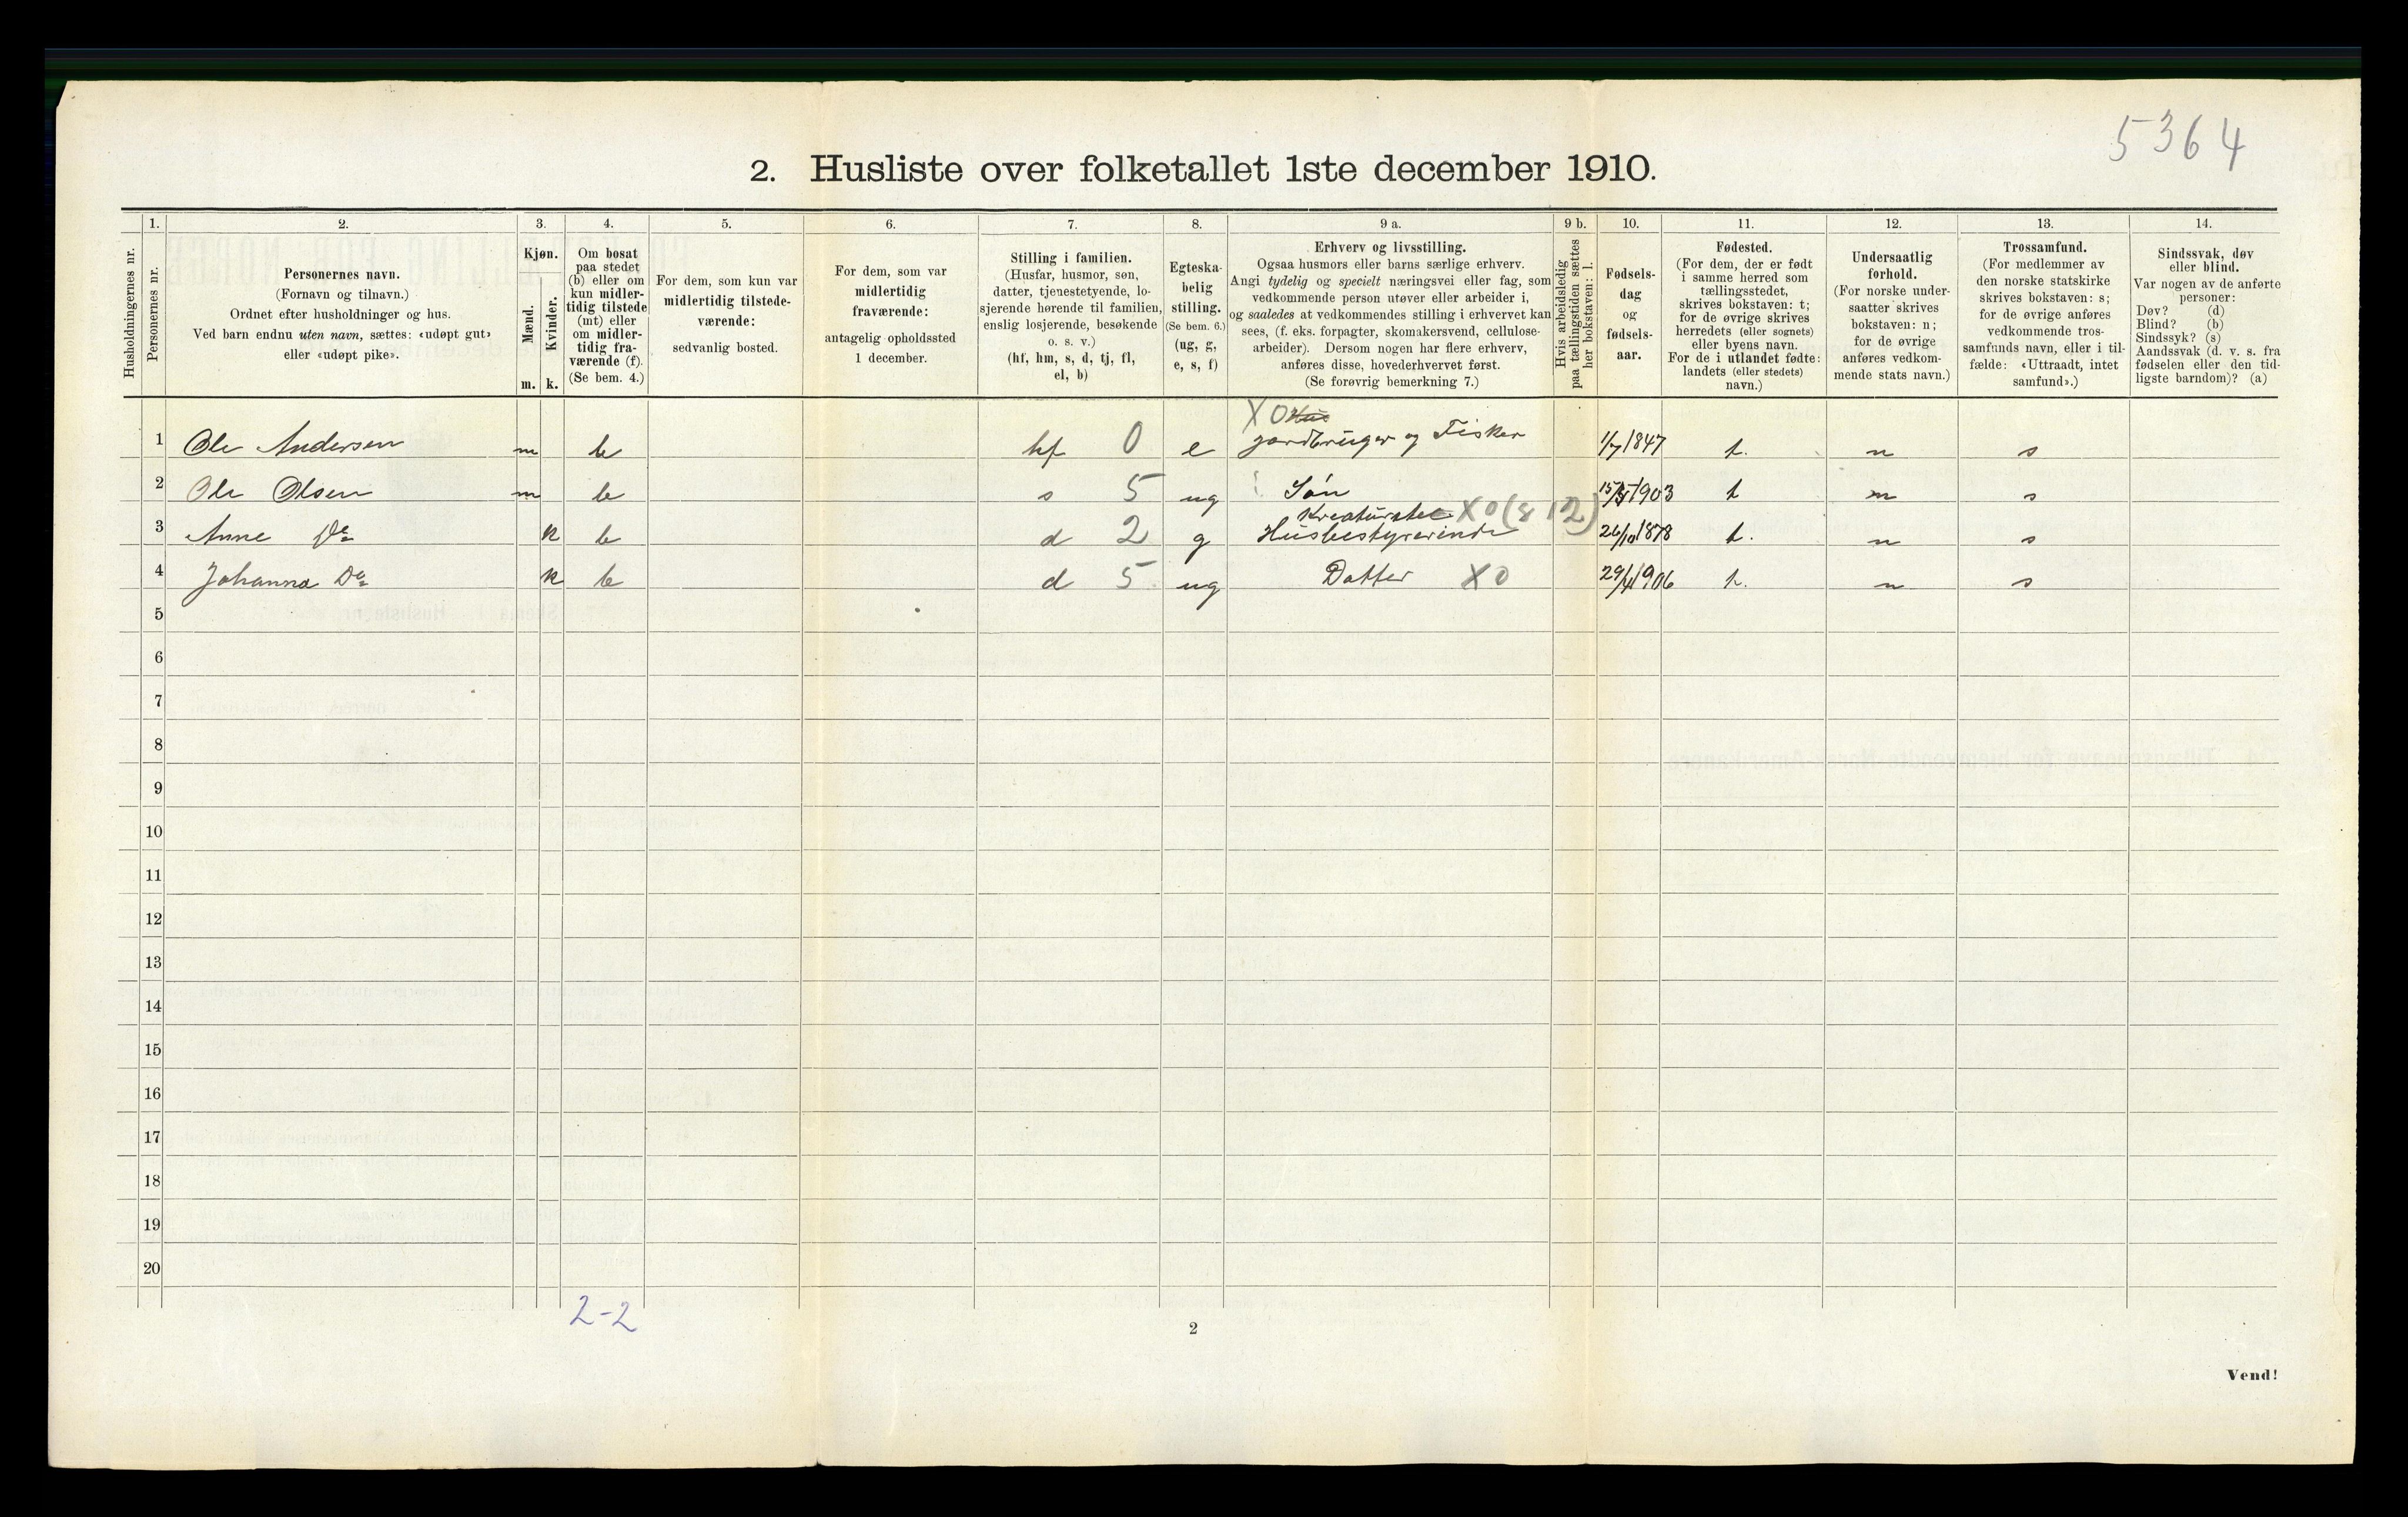 5364
2. Husliste over folketallet 1ste december 1910.
Husholdningernes nr.
1.
Personernes nr.
2.
Personernes navn.
(Fornavn og tilnavn.)
Ordnet efter husholdninger og hus.
Ved barn endnu uten navn, sættes: «udøpt gut»
eller «udøpt pike».
3.
Kjøn.
Mænd.
Kvinder.
m. k.
4.
Om bosat
paa stedet
(b) eller om
kun midler-
tidig tilstede
(mt) eller
om midler-
tidig fra-
værende (f).
(Se bem. 4.)
5.
For dem, som kun var
midlertidig tilstede-
værende:
sedvanlig bosted.
6.
For dem, som var
midlertidig
fraværende:
antagelig opholdssted
1 december.
7.
Stilling i familien.
(Husfar, husmor, søn,
datter, tjenestetyende, lo-
sjerende hørende til familien,
enslig losjerende, besøkende
o. s. v.)
(hf, hm, s, d, tj, fl,
el, b)
8.
Egteska-
belig
stilling.
(Se bem. 6.)
(ug, g,
e, s, f)
9 a.
Erhverv og livsstilling.
Ogsaa husmors eller barns særlige erhverv.
Angi tydelig og specielt næringsvei eller fag, som
vedkommende person utøver eller arbeider i,
og saaledes at vedkommendes stilling i erhvervet kan
sees, (f. eks. forpagter, skomakersvend, cellulose-
arbeider). Dersom nogen har flere erhverv,
anføres disse, hovederhvervet først.
(Se forøvrig bemerkning 7.)
9 b.
Hvis arbeidsledig
paa tællingstiden sættes
her bokstaven: l.
10.
Fødsels-
dag
og
fødsels-
aar.
11.
Fødested.
(For dem, der er født
i samme herred som
tællingsstedet,
skrives bokstaven: t;
for de øvrige skrives
herredets (eller sognets)
eller byens navn.
For de i utlandet fødte:
landets (eller stedets)
navn.)
12.
Undersaatlig
forhold.
(For norske under-
saatter skrives
bokstaven: n;
for de øvrige
anføres vedkom-
mende stats navn.)
13.
Trossamfund.
(For medlemmer av
den norske statskirke
skrives bokstaven: s;
for de øvrige anføres
vedkommende tros-
samfunds navn, eller i til-
fælde: «Uttraadt, intet
samfund».)
14.
Sindssvak, døv
eller blind.
Var nogen av de anførte
personer:
Døv? (d)
Blind? (b)
Sindssyk? (s)
Aandssvak (d. v. s. fra
fødselen eller den tid-
ligste barndom)? (a)
X0 Hus
1 Ole Andersen m b hf 0 e jordbruger og Fisker 1/7 1847 t. n s
2 Ole Olsen m b s 5 ug Søn 15/5 1903 t n s
Kreaturstel X0 (8 12)
3 Anne Do k b d 2 g Husbestyrerinde 26/10 1878 t. n s
4 Johanna Do k b d 5 ug Datter X0 29/4 1906 t. n s
5
6
7
8
9
10
11
12
13
14
15
16
17
18
19
20
2-2
2
Vend!